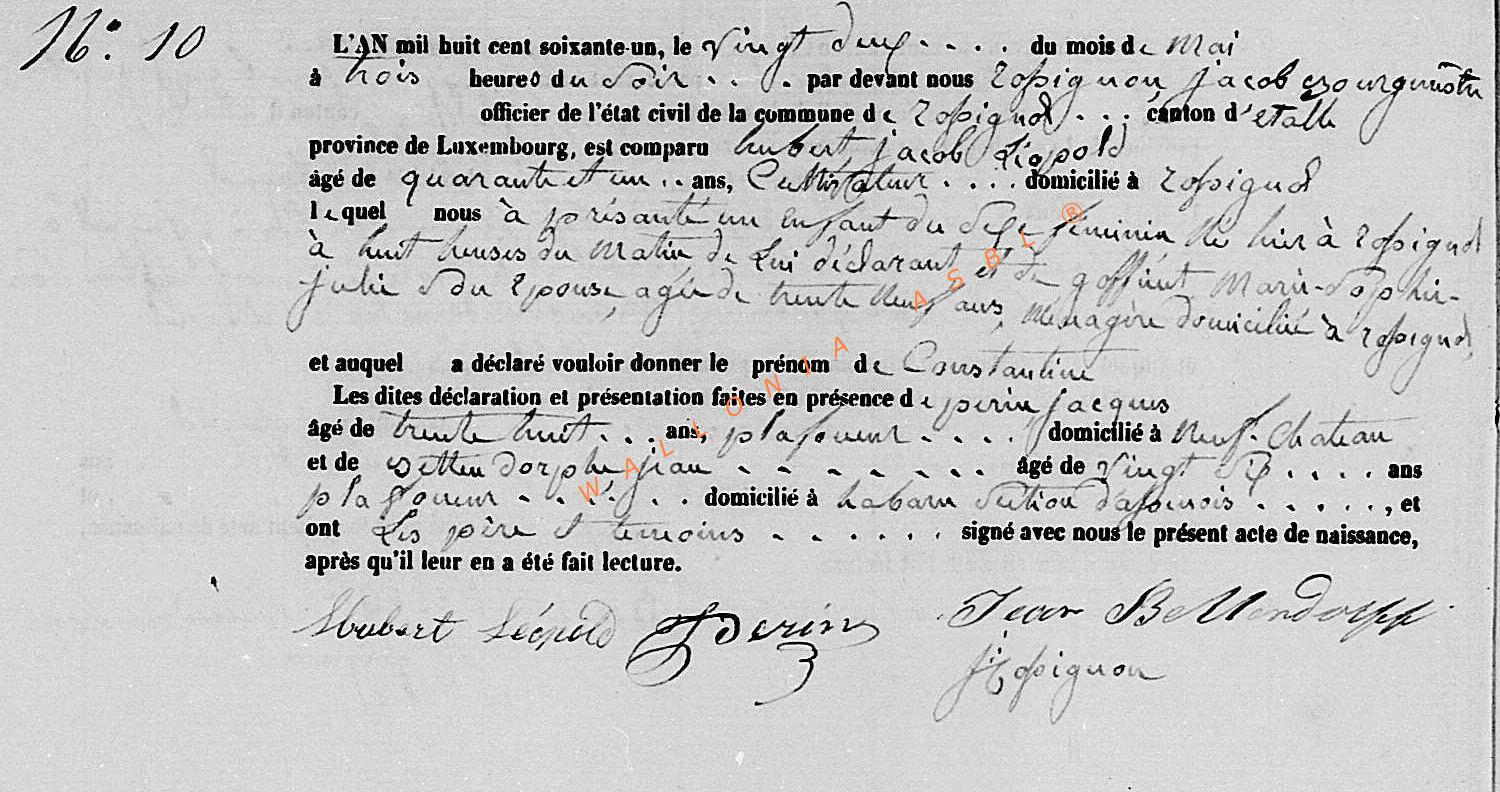 N° 10
L'AN mil huit cent soixante-un, le vingt deux . . . . du mois de Mai
à trois heures du Soir . . . par devant nous rossignon jacob Bourgmestre
officier de l'état civil de la commune de rossignol . . . canton d'etalle
province de Luxembourg, est comparu hubert, jacob Léopold
âgé de quarante et un . . ans, Cultivateur . . . . domicilié à rossignol
lequel nous à présanté un enfant du Sexe féminin Né hier à rossignol
à huit heures du Matin de Lui déclarant et de goffinet Marie-Sophie-
julie Son Epouse, agée de trente Neuf ans, Ménagère domiciliée à rossignol,
et auquel a déclaré vouloir donner le prénom de Constantine
Les dites déclaration et présentation faites en présence de perin jacques
âgé de trente huit . . . ans, plafoneur . . . . domicilié à Neuf-Chateau
et de jean - - - - - - - - âgé de vingt Six . . . . ans
plafoneur . . . . . . . domicilié à habaru Section d'assenois . . . . . . , et
ont Les père et temoins . . . . . . signé avec nous le présent acte de naissance,
après qu'il leur en a été fait lecture.
Hubert Léopold JPerin Jean Bettendorff
Jrossignon
WALLONIA ASBL ®